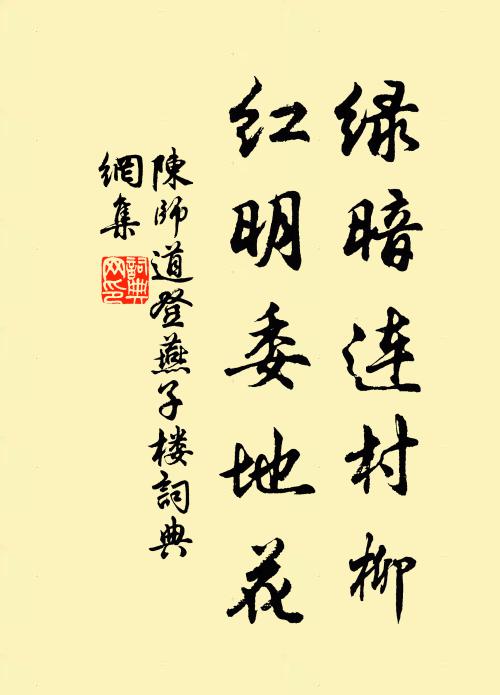 绿暗连村柳
红明委地花
陳师道登燕子楼詞典
網集
詞典
网印